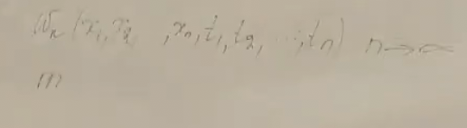 W_n (x_1, x_2, , x_n, t_1, t_2, ..., t_n) n→∞
m